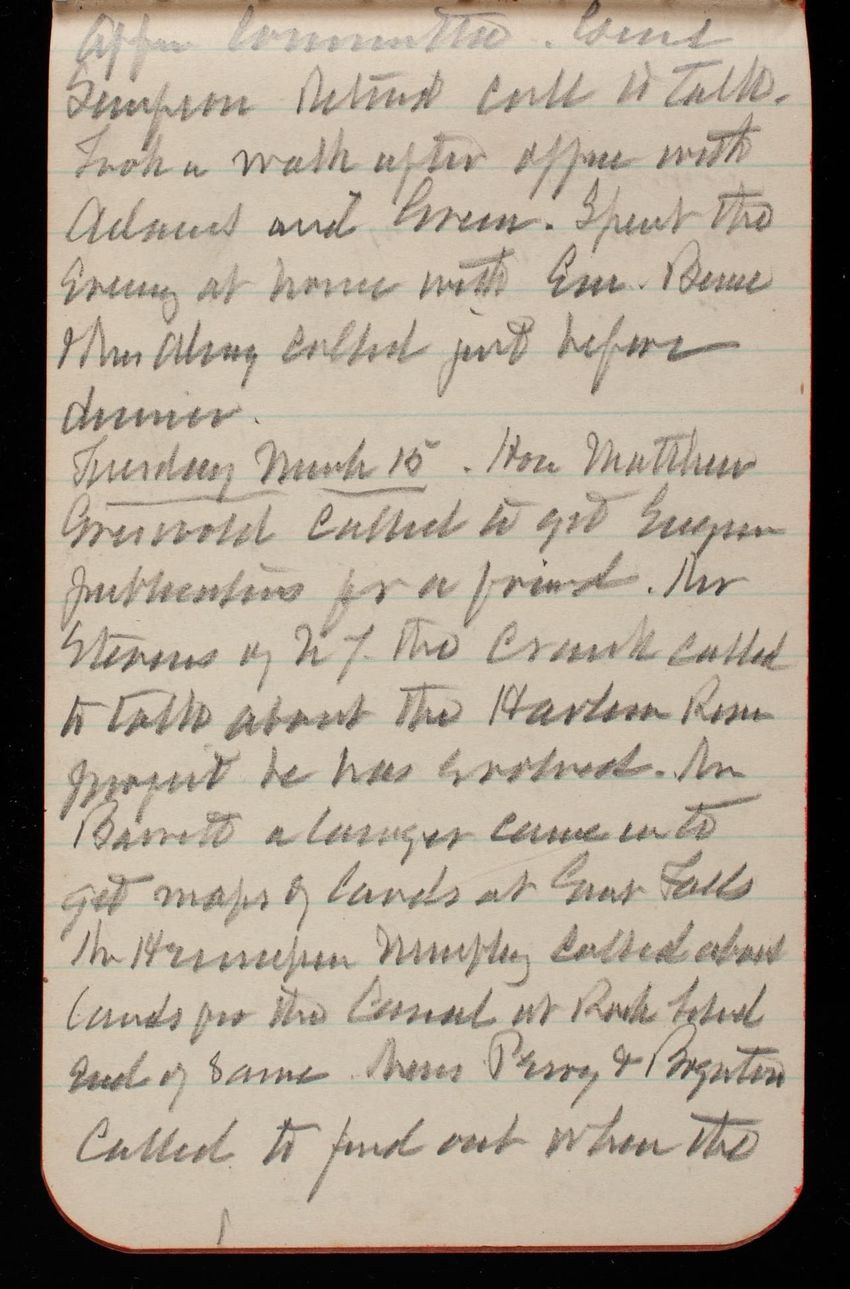 Appn Committee. Coms
Simpson Retired call to talk.
Took a walk after office with
Adams and Green. Spent the
Evening at home with Em. Berne
& Mrs called just before
dinner.
Tuesday March 15. Hon Matthew
Griswold called to get
publications for a friend. Mr
Stevens of N Y. the Crank called
to talk about the Harlem River
project he has evolved. Mr
Barrett a lawyer came in to
get maps of lands at Great Falls
Mr Hennepin Murphy called about
lands for the Canal at Rock Island
End of Same. Mess Perry & Boynton
Called to find out when the